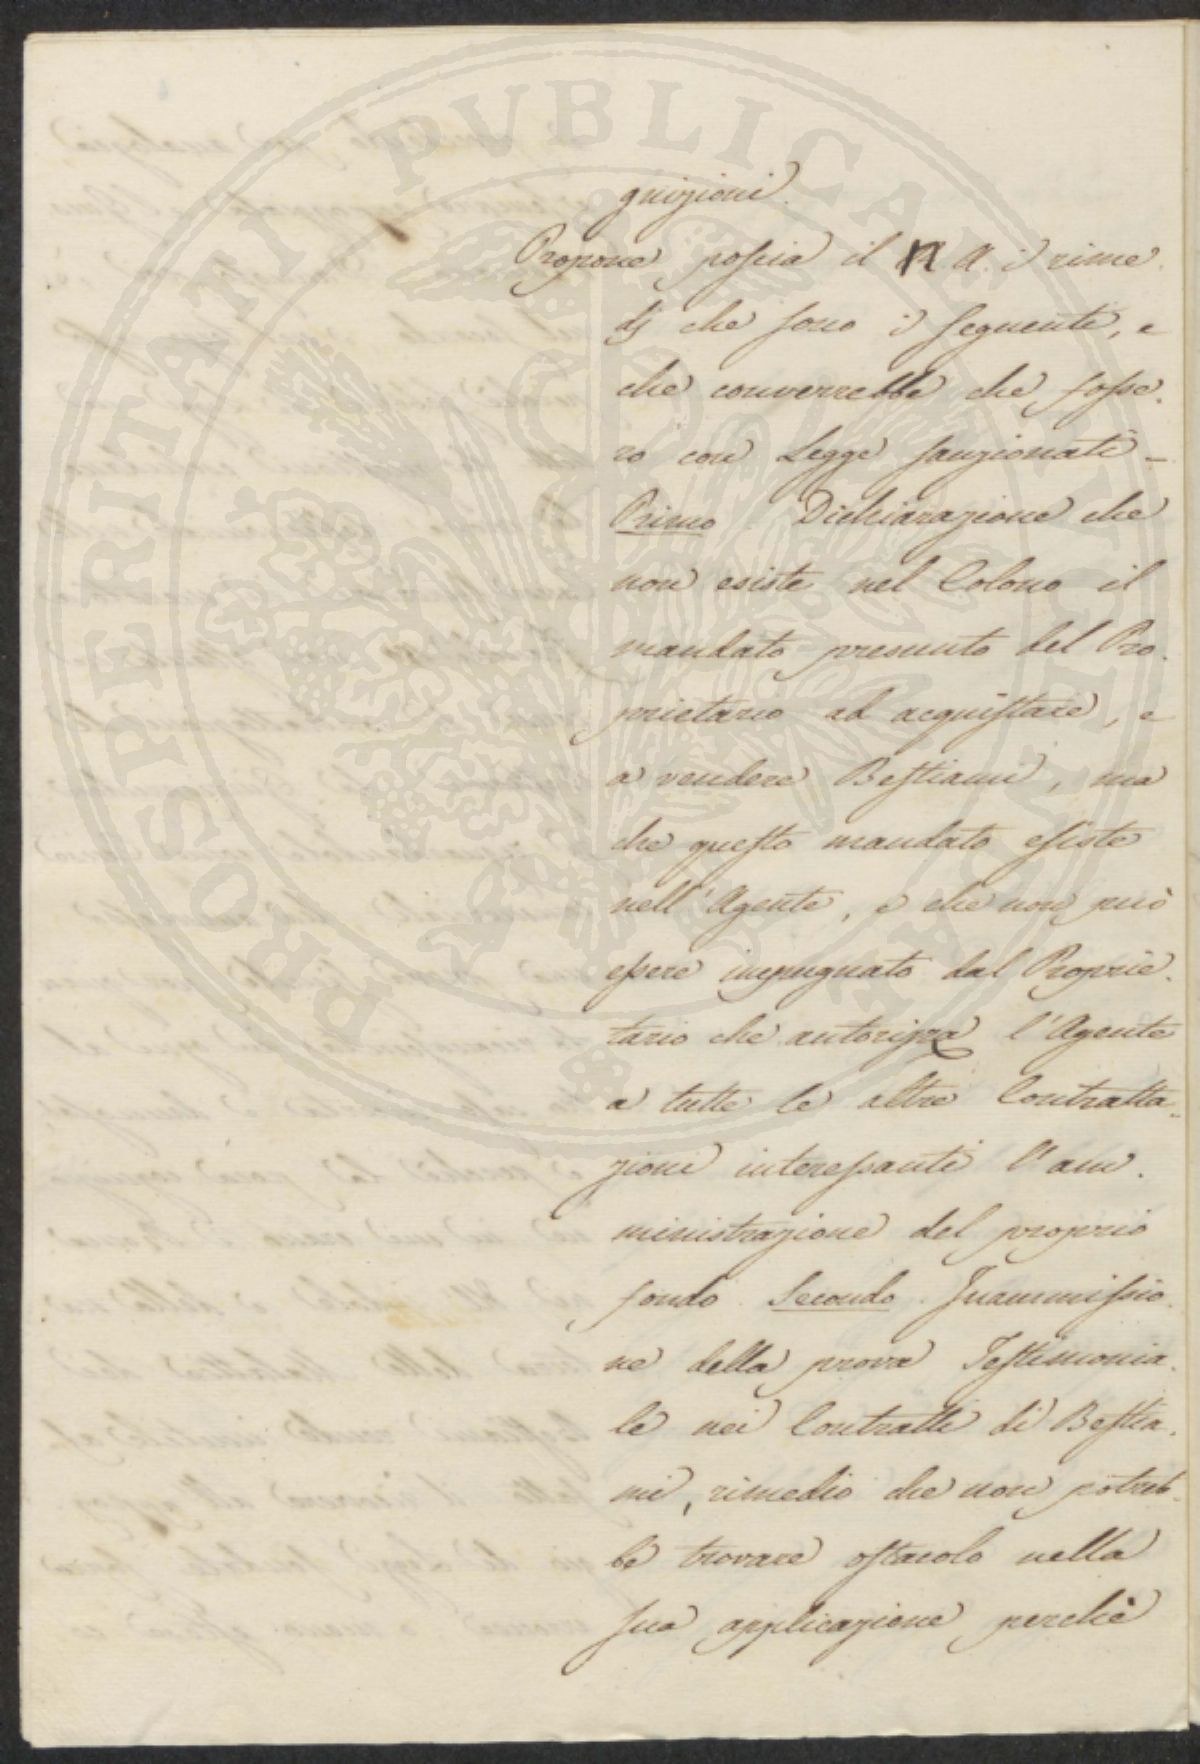 gnizioni.
Propone poscia il N. A. i rime
dj che sono i seguenti, e
che converrebbe che fosse-
ro con Legge sanzionati –
Primo Dichiarazione che
non esiste nel Colono il
mandato presunto del Pro-
prietario ad acquistare, e
a vendere Bestiami, ma
che questo mandato esiste
nell'Agente, e che non può
essere impugnato dal Proprie-
tario che autorizza l'Agente
a tutte le altre Contratta-
zioni interessanti l'am-
ministrazione del proprio
fondo. Secondo. Inammissio-
ne della prova Testimonia-
le nei Contratti di Bestia-
mi, rimedio che non potreb-
be trovare ostacolo nella
sua applicazione perchè
PROSPERITATI PUBLICAE AUGENDAE